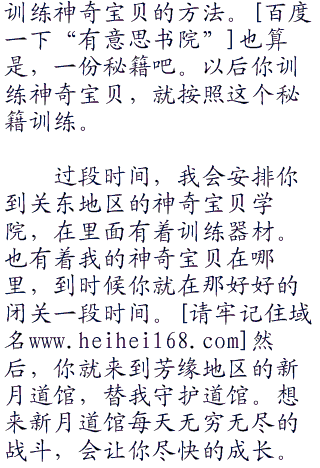 训练神奇宝贝的方法。[百度
一下“有意思书院”]也算
是，一份秘籍吧。以后你训
练神奇宝贝，就按照这个秘
籍训练。
过段时间，我会安排你
到关东地区的神奇宝贝学
院，在里面有着训练器材。
也有着我的神奇宝贝在哪
里，到时候你就在那好好的
闭关一段时间。[请牢记住域
名www.heihei168.com]然
后，你就来到芳缘地区的新
月道馆，替我守护道馆。想
来新月道馆每天无穷无尽的
战斗，会让你尽快的成长。